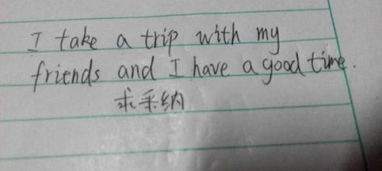 I take a trip with my
friends and I have a good time.
求采纳